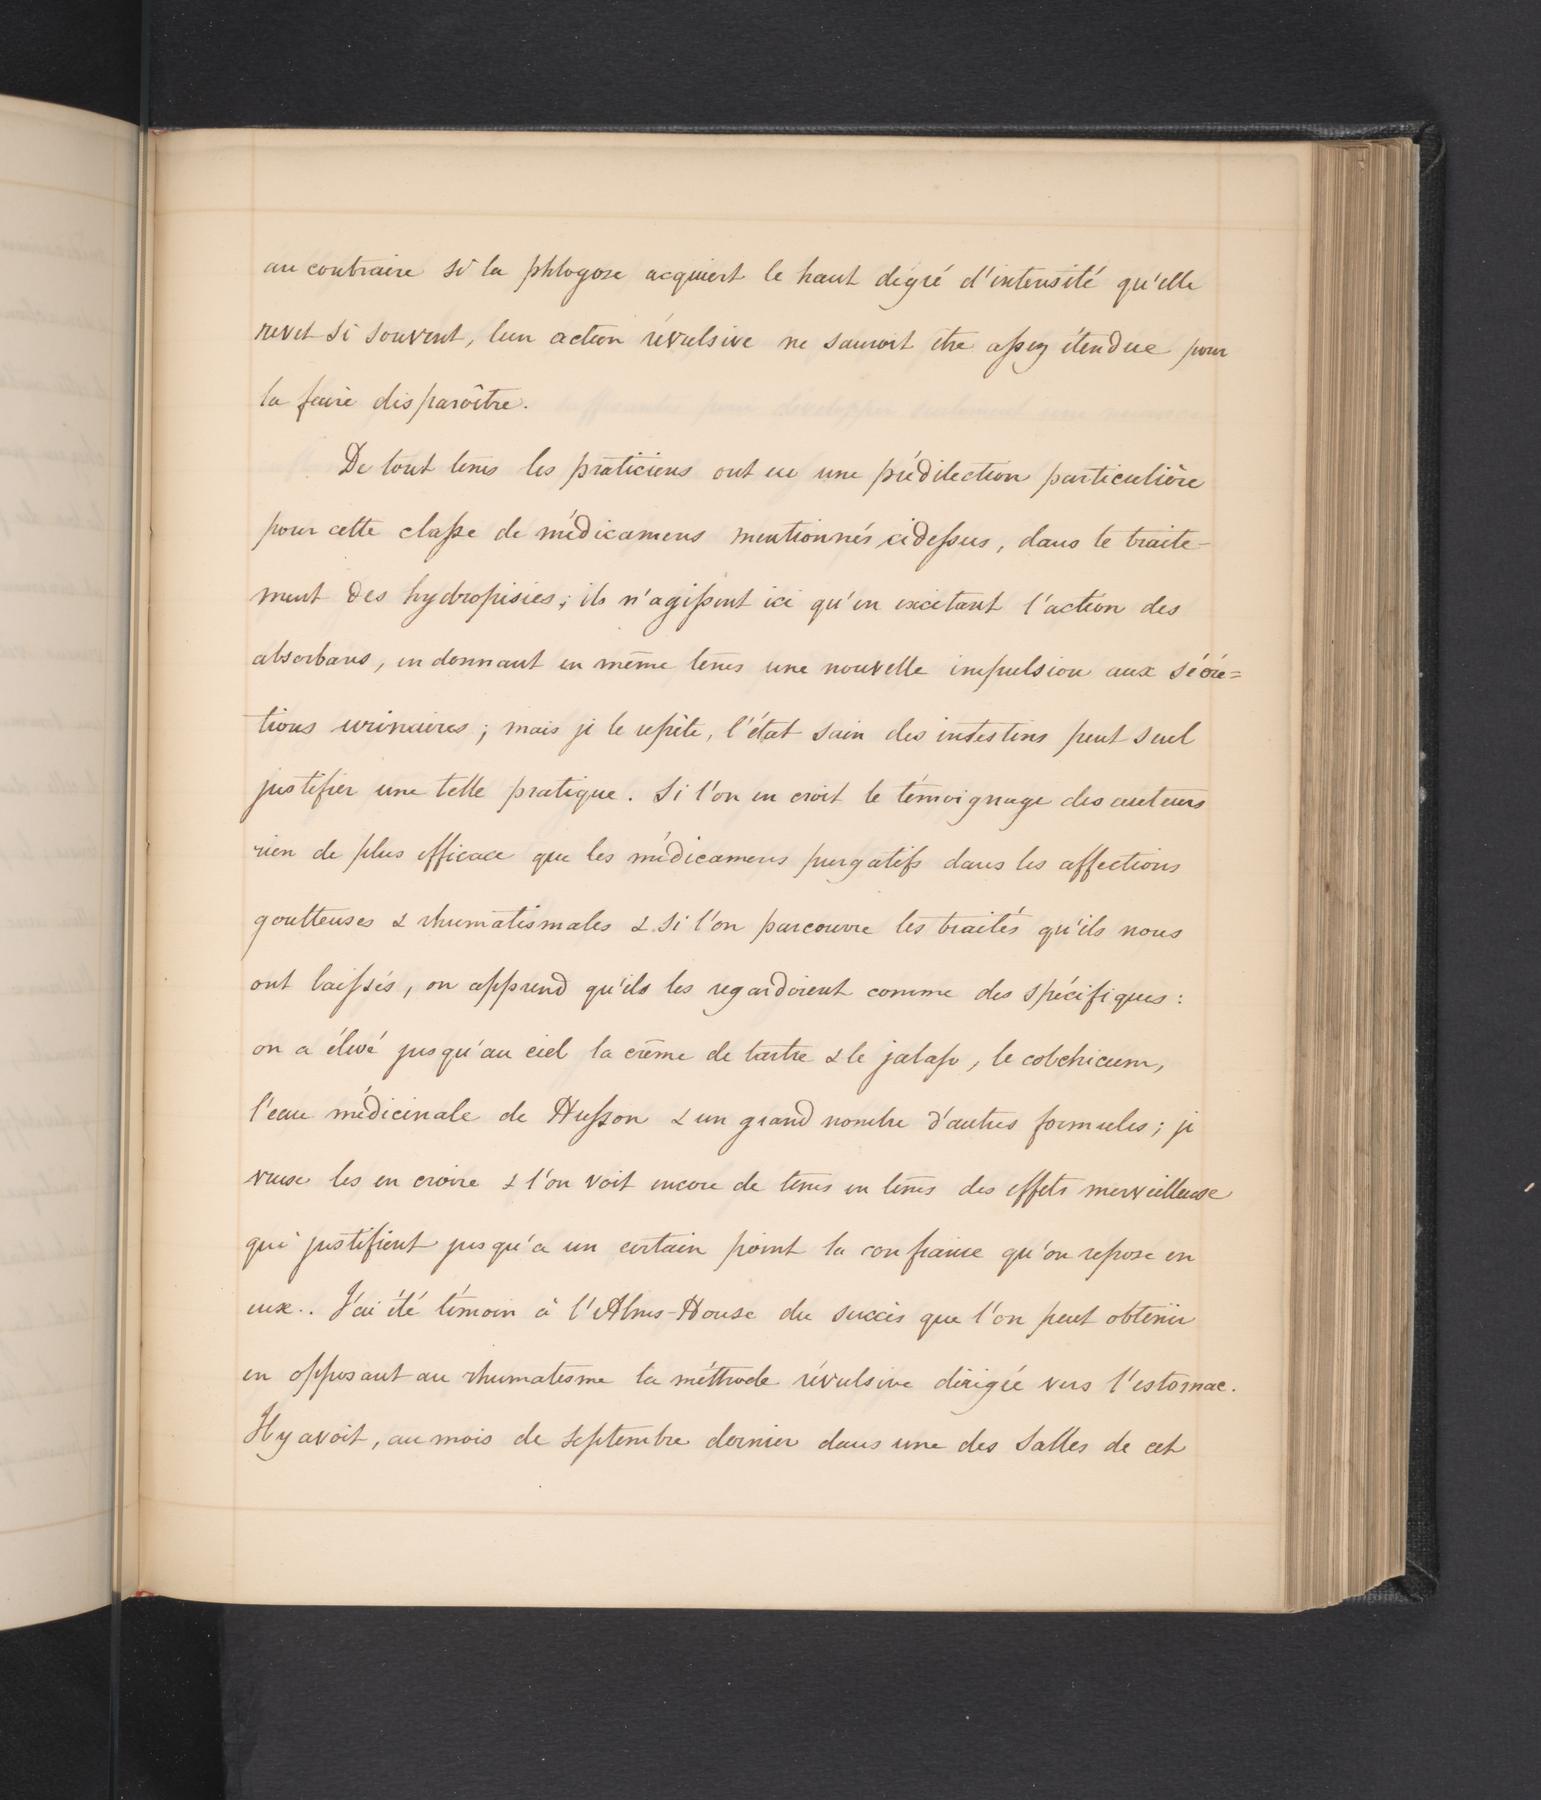 au contraire si la phlogose acquiert le haut dégré d'intensité qu'elle
revet si souvent, leur action révulsive ne sauroit être assez étendue pour
la faire disparoître.
De tout tems les praticiens ont eu une prédilection particulière
pour cette classe de médicamens mentionnés cidessus, dans le traite-
ment des hydropisies; ils n'agissent ici qu'en excitant l'action des
absorbans, en donnant en même tems une nouvelle impulsion aux sécré=
tions urinaires; mais je le repète, l'état sain des intestins peut seul
justifier une telle pratique. Si l'on en croit le témoignage des auteurs
rien de plus efficace que les médicamens purgatifs dans les affections
goutteuses & rhumatismales & si l'on parcourre les traités qu'ils nous
ont laissés, on apprend qu'ils les regardoient comme des spécifiques:
on a élevé jusqu'au ciel la crême de tartre & le jalap, le colchicum,
l'eau médicinale de Husson & un grand nombre d'autres formules; je
veux les en croire & l'on voit encore de tems en tems des effets merveilleux
qui justifient jusqu'a un certain point la confiance qu'on repose en
eux.. J'ai été témoin à l'Alms-House du succès que l'on peut obtenir
en opposant au rhumatisme la méthode révulsive dirigée vers l'estomac.
Il y avoit, au mois de septembre dernier dans une des salles de cet